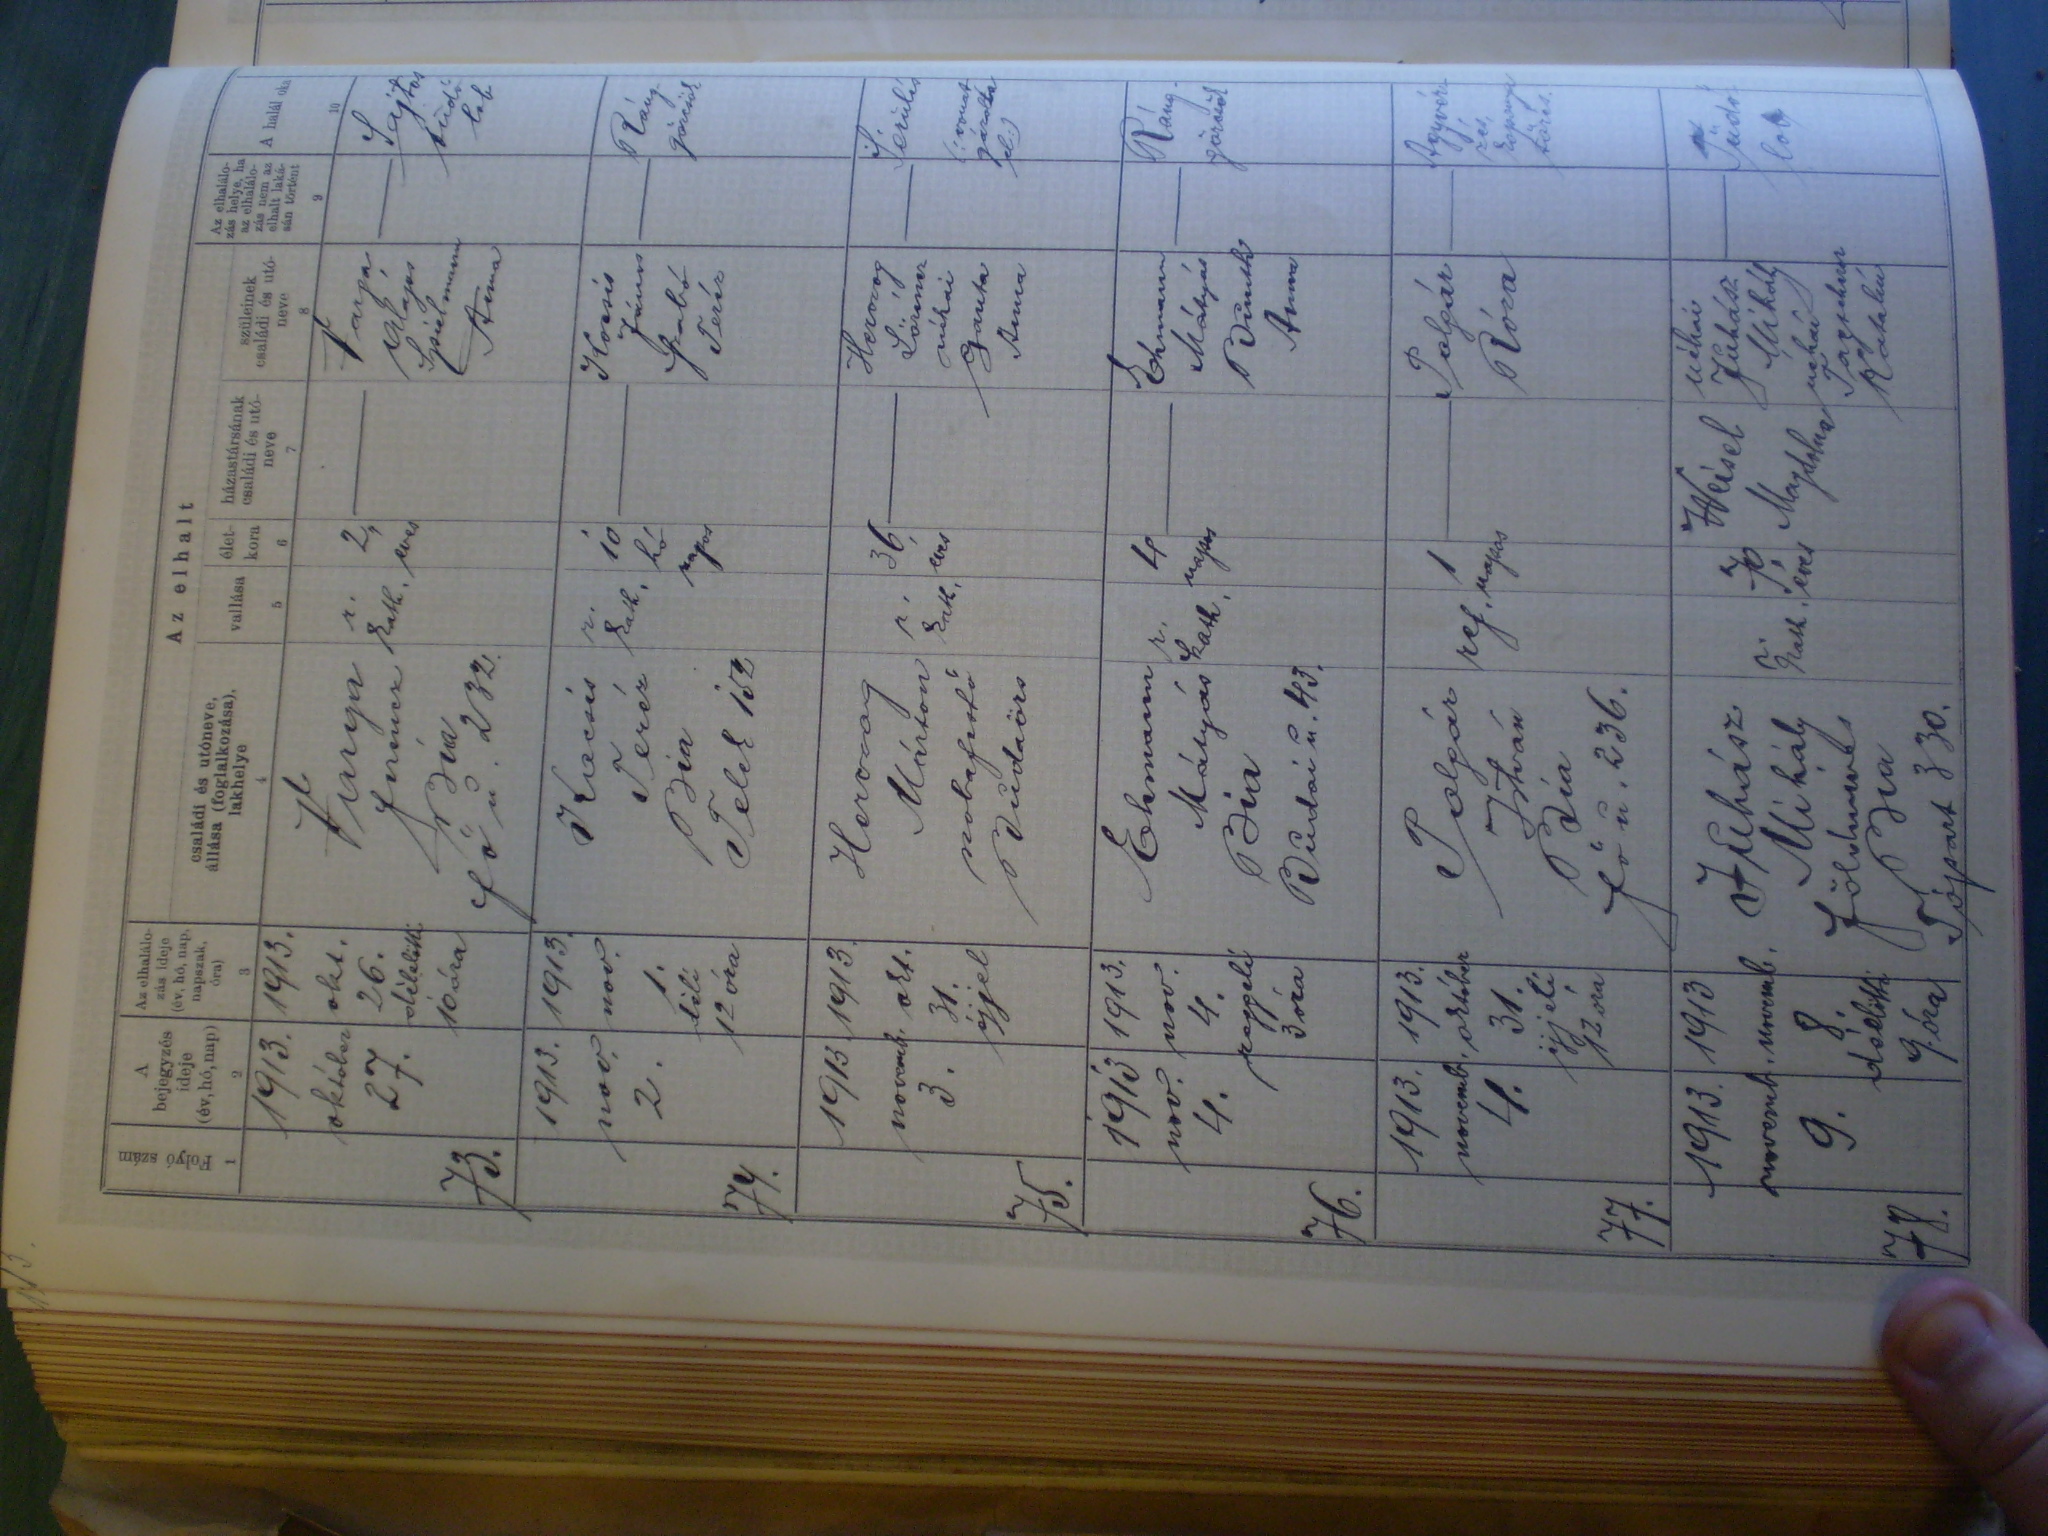 Az elhalt
Folyó szám
A bejegyzés ideje (év, hó, nap)
Az elhalálozás ideje (év, hó, nap, napszak, óra)
családi és utóneve, állása (foglalkozása), lakhelye
vallása
életkora
házastársának családi és utóneve
szüleinek családi és utóneve
Az elhalálozás helye, ha az elhalálozás nem az elhalt lakásán történt
A halál oka
1 2 3 4 5 6 7 8 9 10
73.
1913. október 27.
1913. okt. 26. délelőtti 10 óra
Varga Ferencz Bia Fő u. 232.
r. kath.
2 éves
Varga Alajos
Anna
Sajtos tüdőlob
74.
1913. nov. 2.
1913. nov. 1. déli 12 óra
Kocsis Teréz Bia Telek 152
r. kath.
10 hónapos
Kocsis János Szabó Teréz
Ránggörcsök
75.
1913. novemb. 3.
1913. okt. 31. éjjel
Herczog Márton Budaörs
r. kath.
36 éves
Herczog Lőrincz néhai
Anna
Sérülés (: vonat gázolta el :)
76.
1913 nov. 4.
1913. nov. 4. reggeli 3 óra
Ehmann Mátyás Bia Budai u. 43.
r. kath.
4 napos
Ehmann Mátyás
Anna
Ránggörcsök
77.
1913. novemb. 4.
1913. október 31. éjjeli 12 óra
Polgár István Bia Fő u. 236.
ref.
1 napos
Polgár Róza
78.
1913. novemb. 9.
1913 novemb. 8. délelőtti 9 óra
Juhász Mihály földmives Bia Tópart 330.
r. kath.
70 éves
Weisel Magdolna
néhai Juhász Mihály néhai
Katalin
Tüdőlob